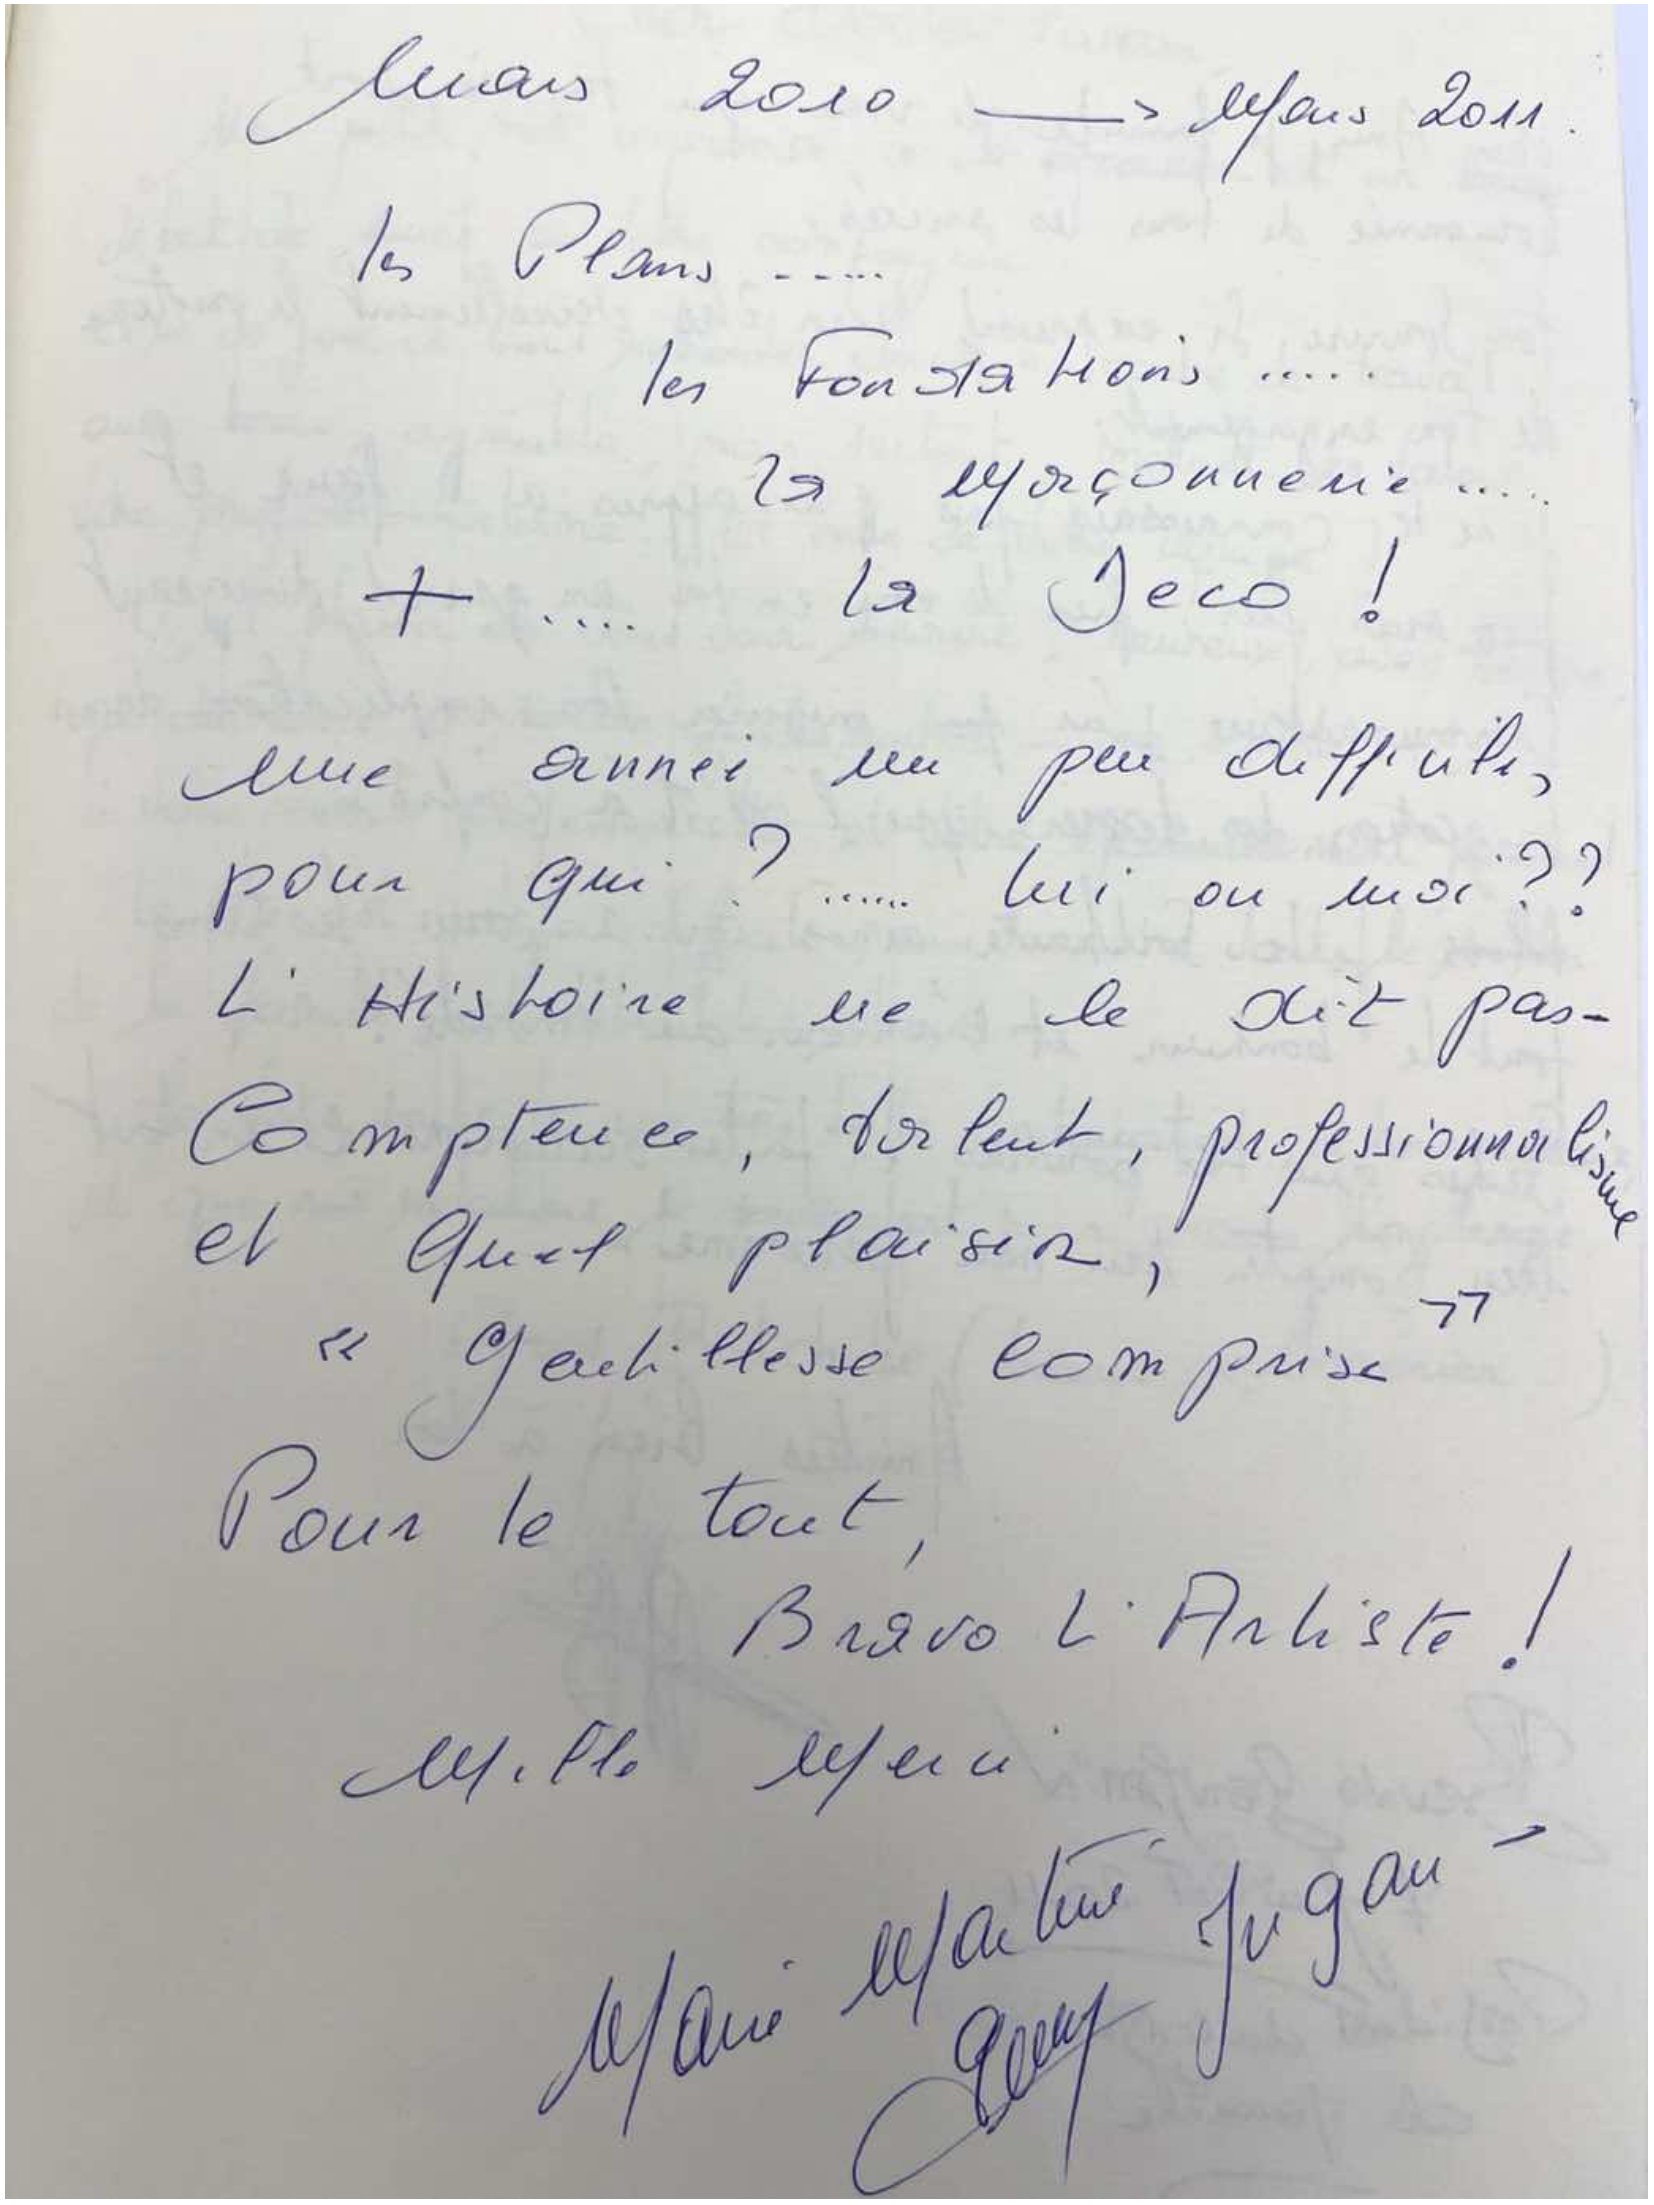 Mars 2010 —> Mars 2011.
les Plans .....
les Fondations .....
la Maçonnerie .....
+ .... la Deco !
une année un peu difficile,
pour qui ? ...... lui ou moi ??
L'Histoire ne le dit pas-
Comptence, talent, professionnalisme
et Quel plaisir,
" Gentillesse comprise "
Pour le tout,
Bravo L'Artiste !
Mille Merci
Marie Martine Jugan